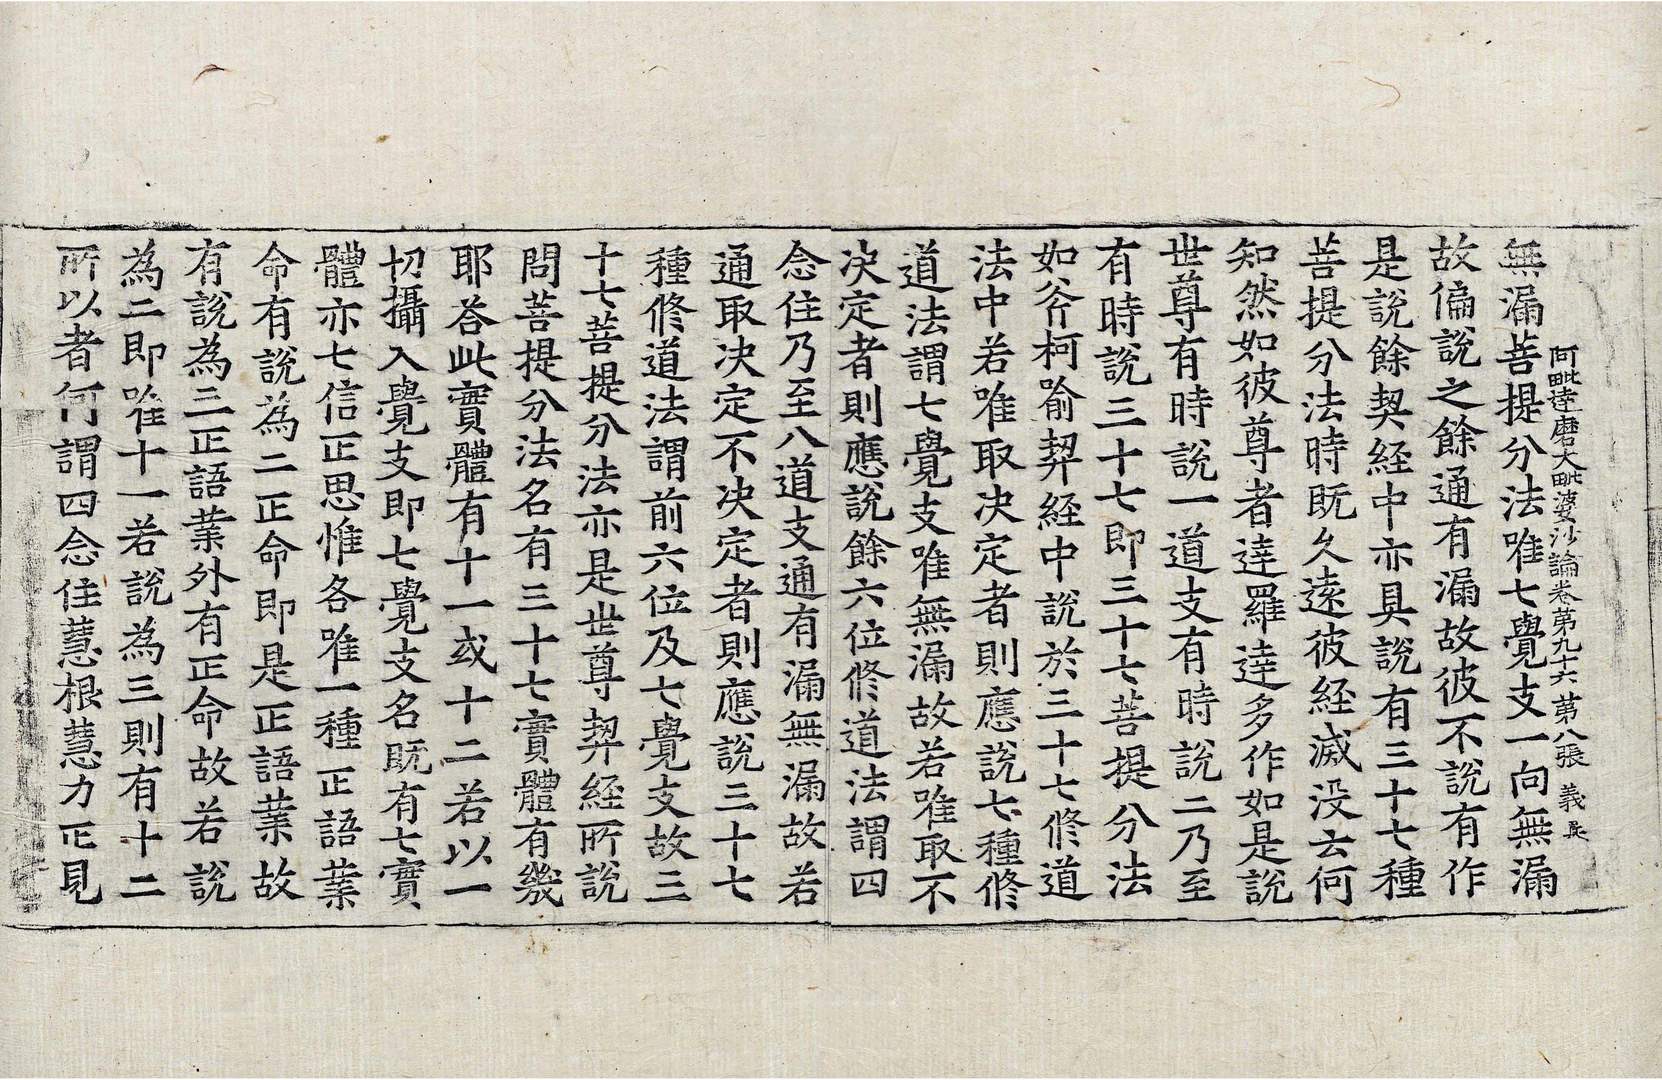 阿毗達磨大毗婆沙論卷第九十六 第八張 義
無漏菩提分法唯七覺支一向無漏
故偏說之餘通有漏故彼不說有作
是說餘契經中亦具說有三十七種
菩提分法時旣久遠彼經滅没云何
知然如彼尊者達羅達多作如是說
世尊有時說一道支有時說二乃至
有時說三十七即三十七菩提分法
如斧柯喻契經中說於三十七修道
法中若唯取决定者則應說七種修
道法謂七覺支唯無漏故若唯取不
决定者則應說餘六位修道法謂四
念住乃至八道支通有漏無漏故若
通取决定不决定者則應說三十七
種修道法謂前六位及七覺支故三
十七菩提分法亦是世尊契經所說
問菩提分法名有三十七實體有幾
耶荅此實體有十一或十二若以一
切攝入覺支即七覺支名旣有七實
體亦七信正思惟各唯一種正語業
命有說為二正命即是正語業故
有說為三正語業外有正命故若說
為二即唯十一若說為三則有十二
所以者何謂四念住慧根慧力正見